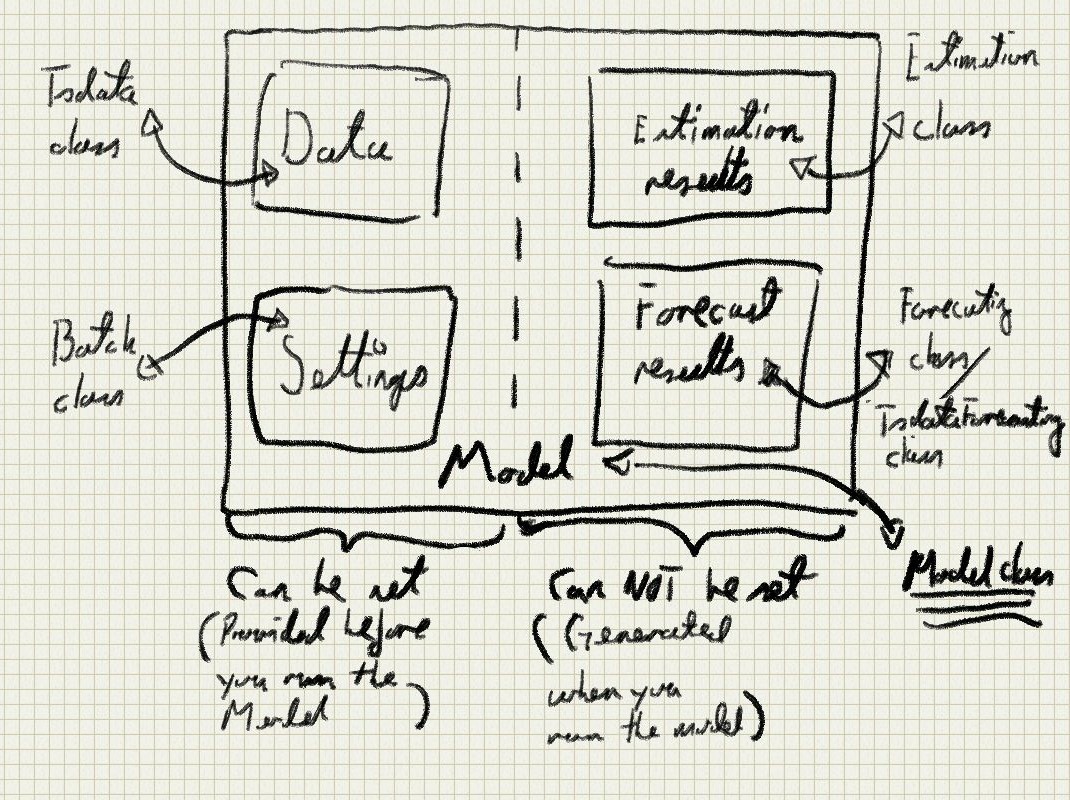 Tsdata
class
Data
Estimation
results
Estimation
class
Batch
class
Settings
Forecast
results
Forecasting
class/
TsdataForecasting
class
Model
Model class
Can be set
(Provided before
you run the
Model)
Can NOT be set
(Generated
when you
run the model)